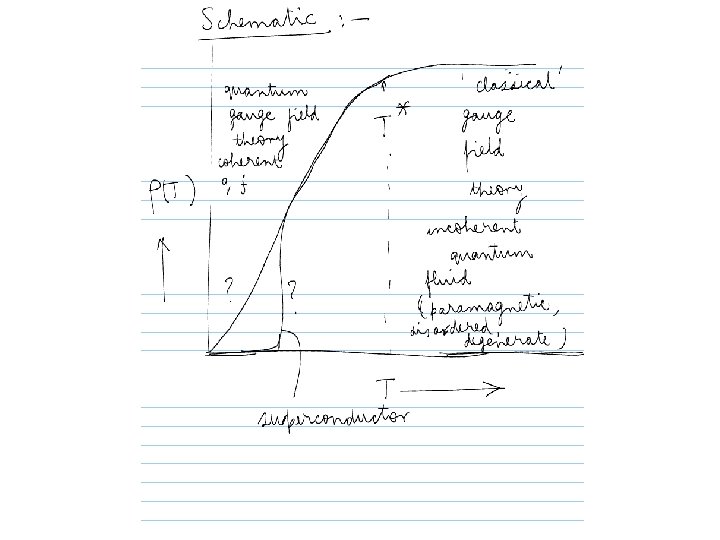 Schematic :-
quantum
gauge field
theory
coherent
'classical'
gauge
field
theory
T*
P(T)
?
?
incoherent
quantum
fluid
(paramagnetic,
disordered
degenerate)
T
superconductor